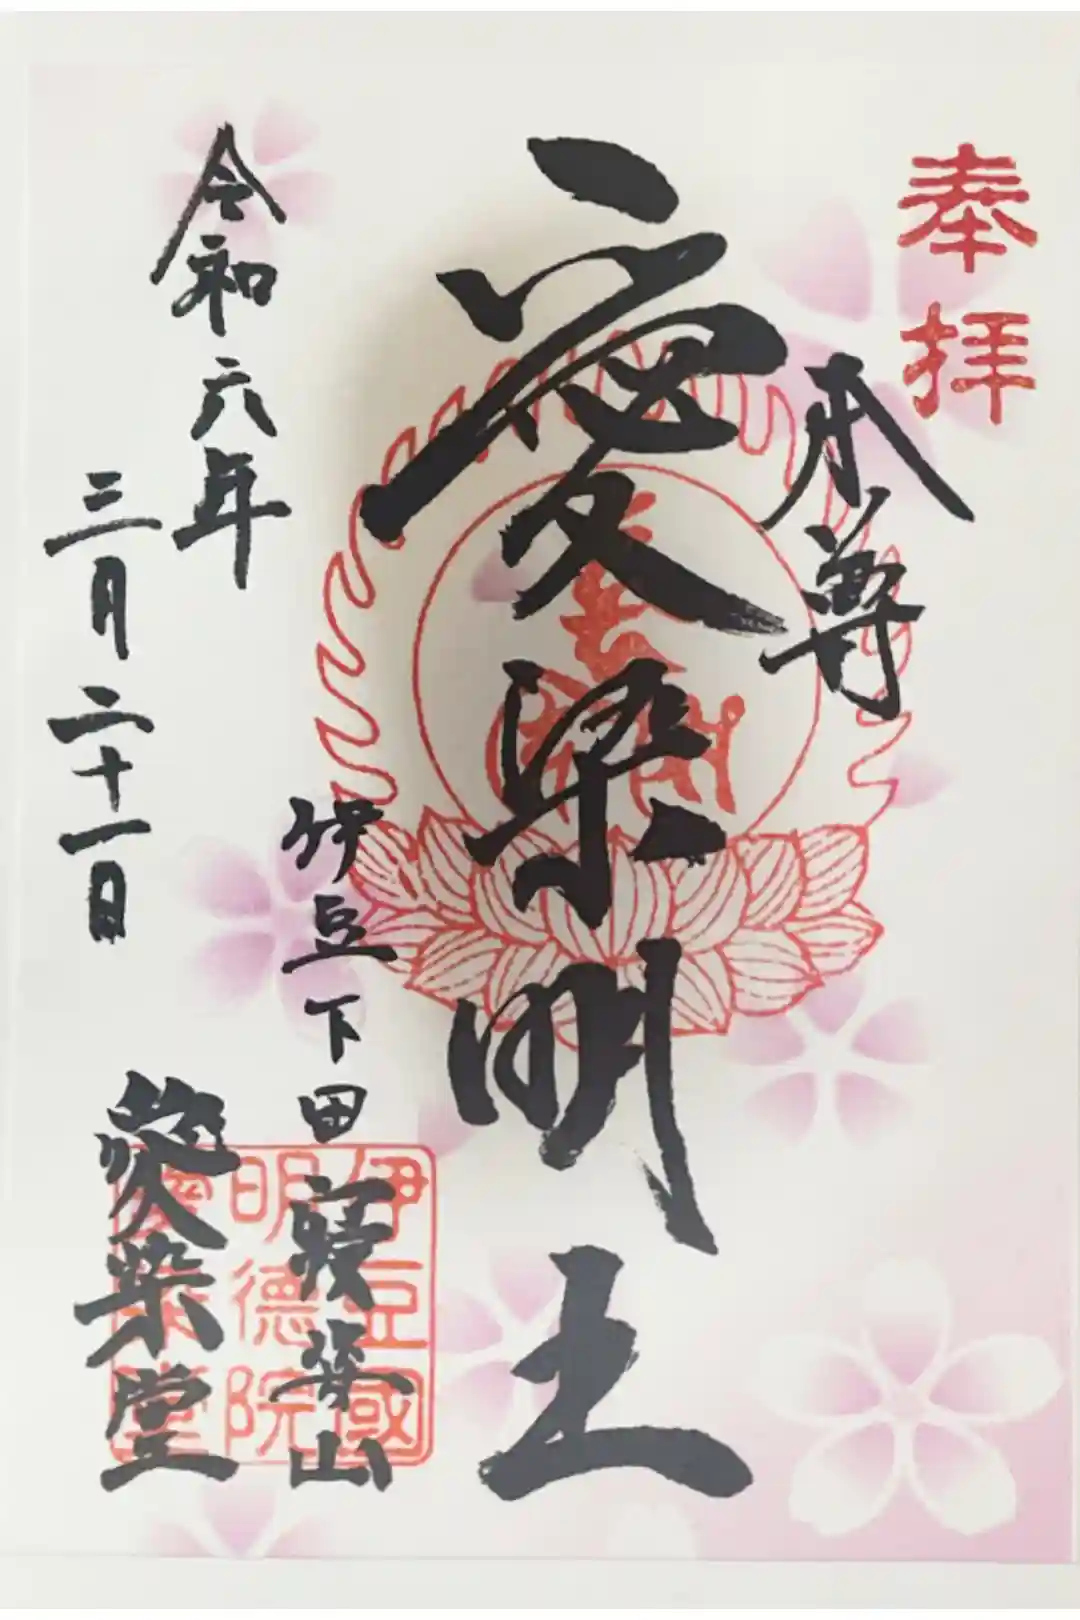 奉拝
本尊
愛染明王
伊豆下田寝姿山
愛染堂
令和六年
三月二十一日
伊豆國
明徳院
愛染堂